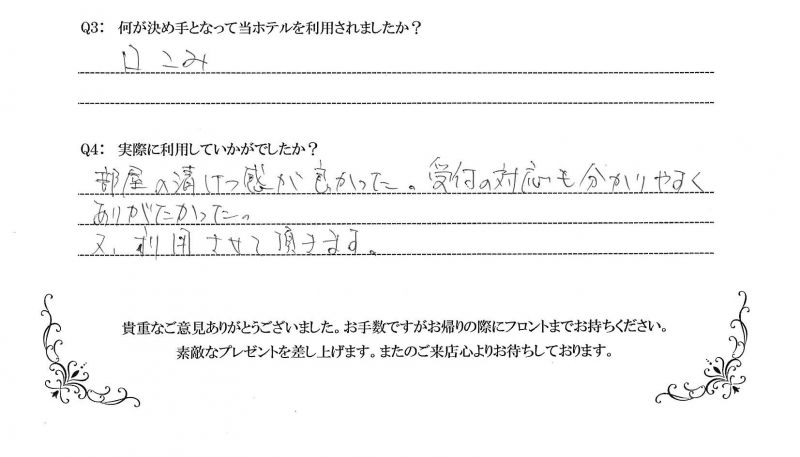 Q3: 何が決め手となって当ホテルを利用されましたか？
口こみ
Q4: 実際に利用していかがでしたか？
部屋の清けつ感が良かった。受付の対応も分かりやすく
ありがたかった。
又、利用させて頂きます。
貴重なご意見ありがとうございました。お手数ですがお帰りの際にフロントまでお持ちください。
素敵なプレゼントを差し上げます。またのご来店心よりお待ちしております。